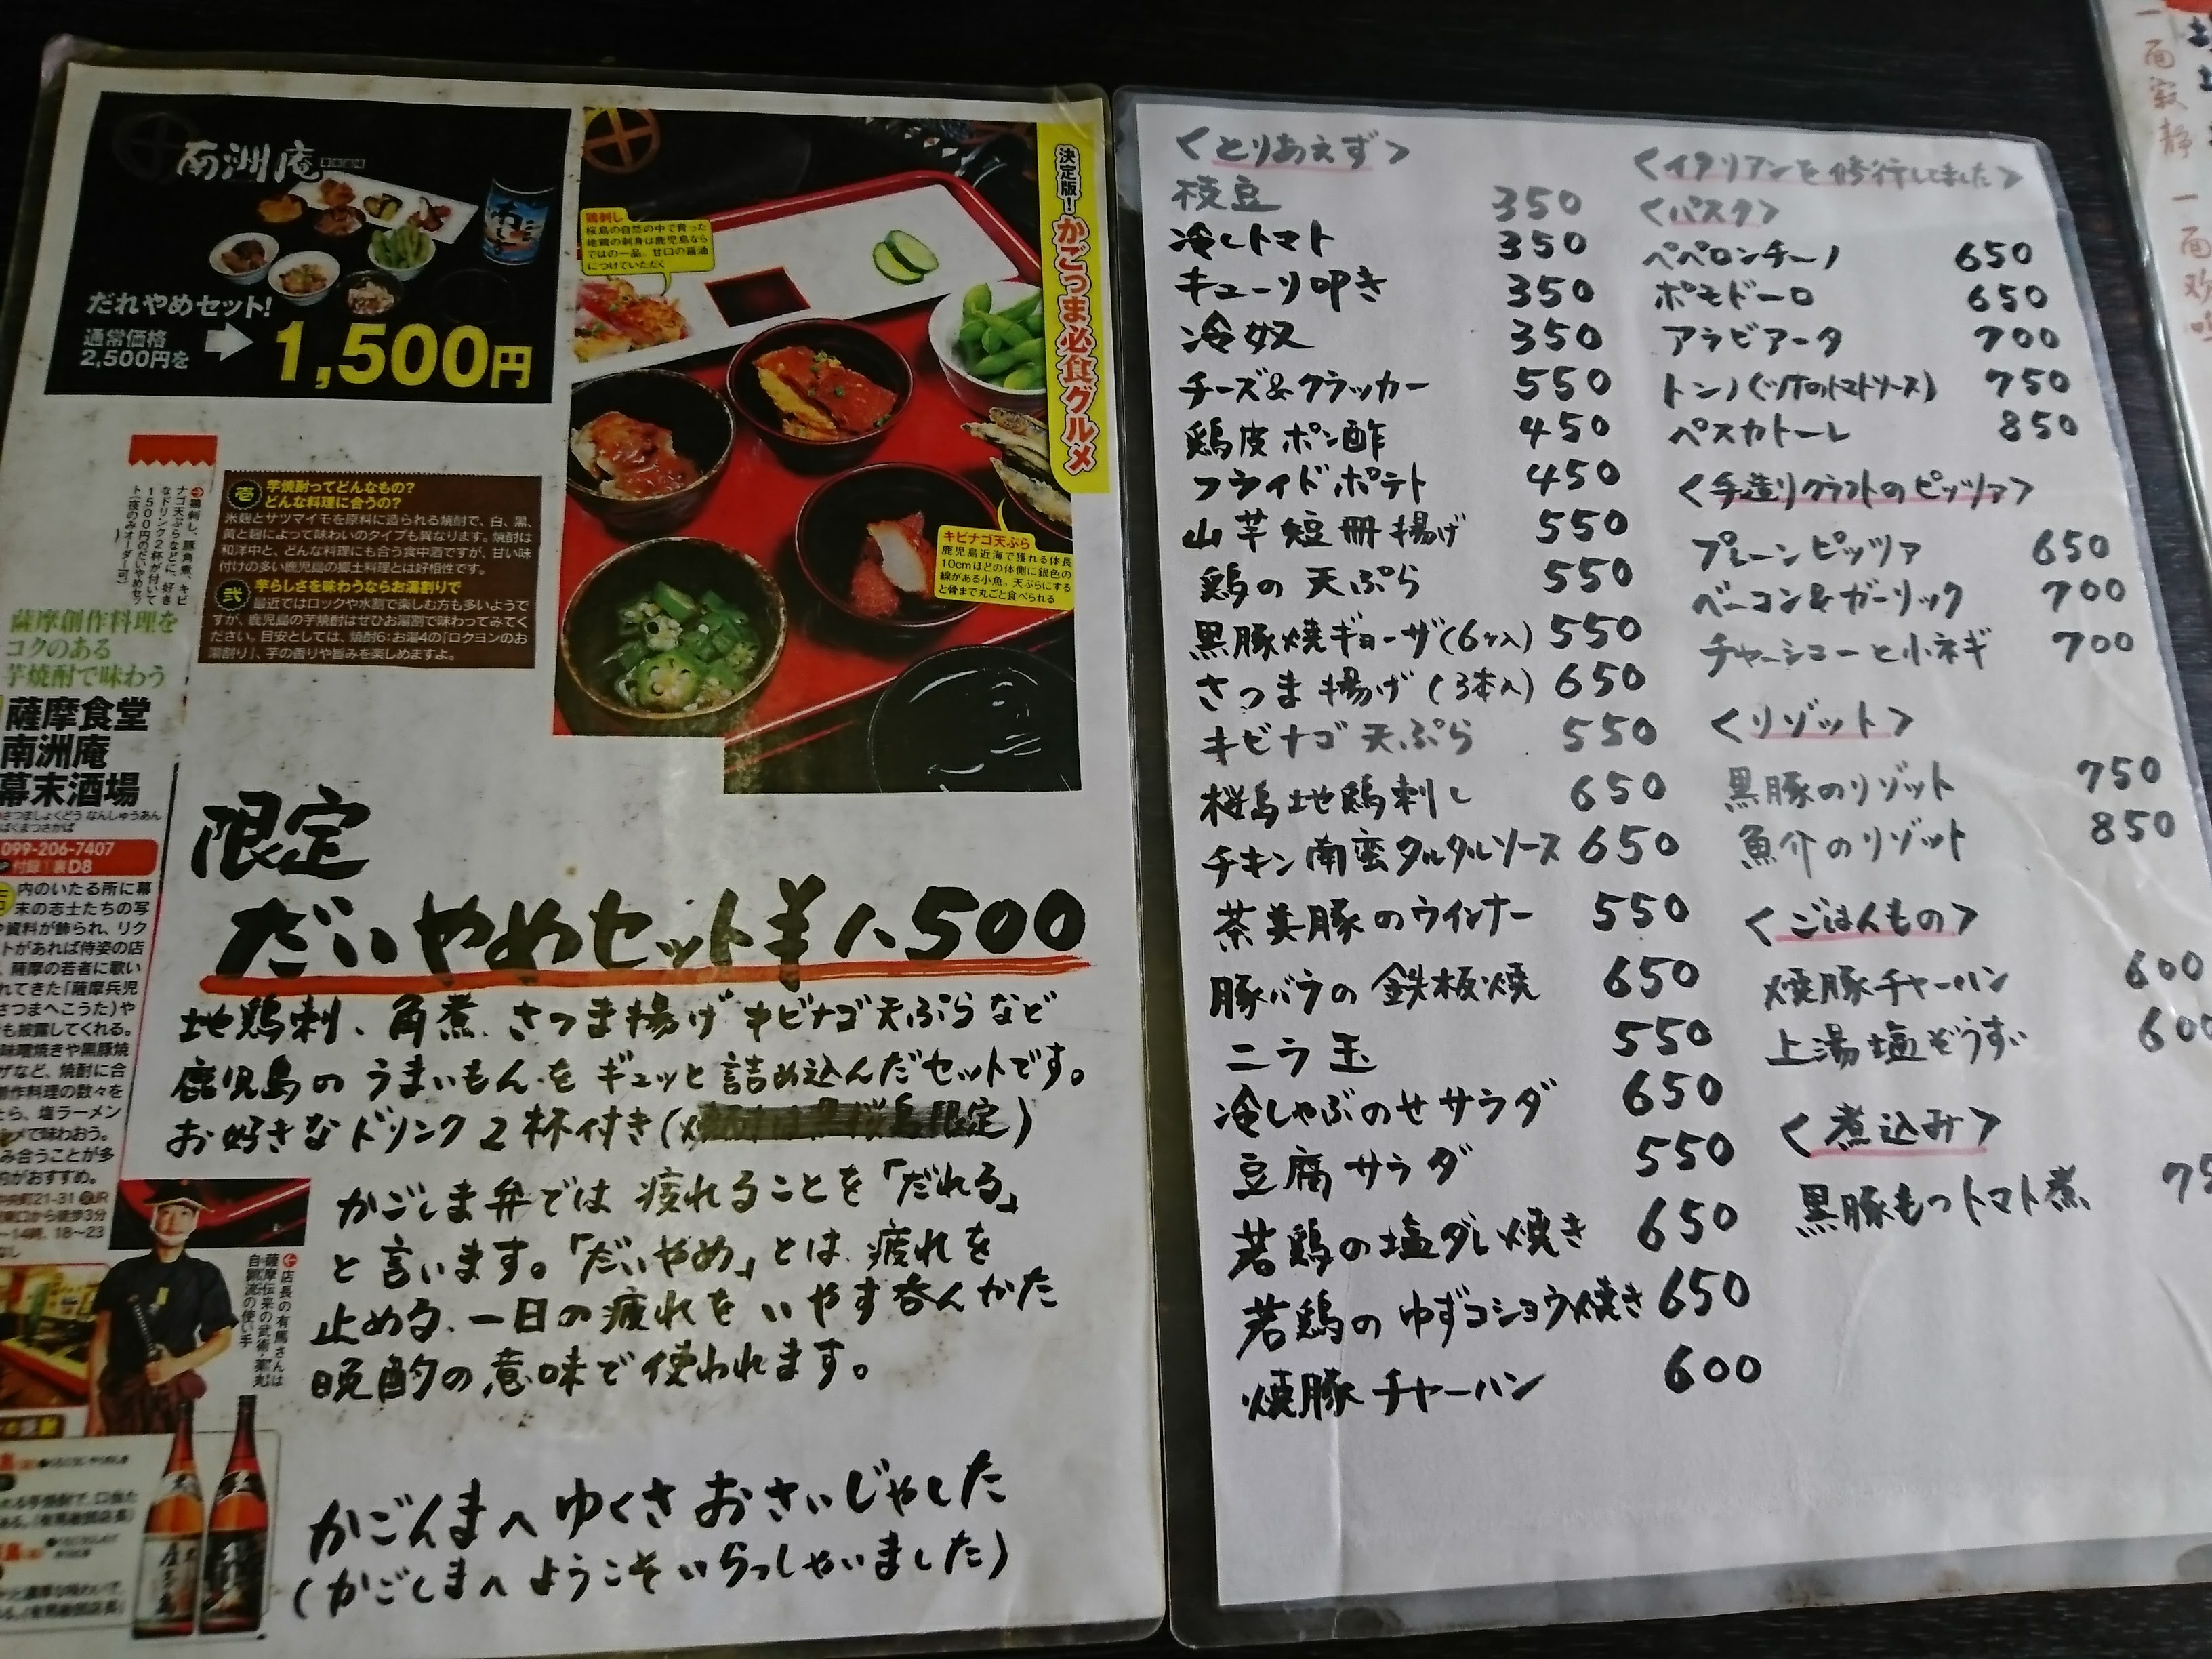 南洲庵
だれやめセット!
通常価格
2,500円を
1,500円
決定版!かごっま必食グルメ
鶏刺し
桜島の自然の中で育った
地鶏の刺身は鹿児島なら
ではの一品。甘口の醤油
につけていただく
キビナゴ天ぷら
鹿児島近海で獲れる体長
10cmほどの体側に銀色の
線がある小魚。天ぷらにする
と骨まで丸ごと食べられる
鶏刺し、豚角煮、キビ
ナゴ天ぷらなどに、好き
なドリンク2杯が付いて
1500円のだいやめセッ
ト(夜のみオーダー可)
壱
芋焼酎ってどんなもの?
どんな料理に合うの?
米麹とサツマイモを原料に造られる焼酎で、白、黒、
黄と麹によって味わいのタイプも異なります。焼酎は
和洋中と、どんな料理にも合う食中酒ですが、甘い味
付けの多い鹿児島の郷土料理とは好相性です。
弐
芋らしさを味わうならお湯割りで
最近ではロックや水割で楽しむ方も多いようで
すが、鹿児島の芋焼酎はぜひお湯割で味わってみてく
ださい。目安としては、焼酎6:お湯4の「ロクヨンのお
湯割り」、芋の香りや旨みを楽しめますよ。
薩摩創作料理を
コクのある
芋焼酎で味わう
薩摩食堂
南洲庵
幕末酒場
さつましょくどう なんしゅうあん
ばくまつさかば
099-206-7407
付録1裏D8
内のいたる所に幕
末の志士たちの写
や資料が飾られ、リク
トがあれば侍姿の店
、薩摩の若者に歌い
れてきた「薩摩兵児
さつまへこうた)や
も披露してくれる。
味噌焼きや黒豚焼
ザなど、焼酎に合
創作料理の数々を
たら、塩ラーメン
メで味わおう。
み合うことが多
約がおすすめ。
中央町21-31 JR
東口から徒歩3分
~14時、18~23
なし
店長の有馬さんは
薩摩伝来の武術・薬丸
自顕流の使い手
限定
だいやめセット¥1,500
地鶏刺、角煮、さつま揚げ キビナゴ天ぷらなど
鹿児島の うまいもんを ギュッと詰め込んだセットです。
お好きなドリンク2杯付き(
かごしま弁では 疲れることを「だれる」
と言います。「だいやめ」とは、疲れを
止める、一日の疲れを いやす呑んかた
晩酌の意味で使われます。
かごんまへ ゆくさ おさいじゃした
(かごしまへ ようこそ いらっしゃいました)
<とりあえず>
枝豆 350
冷しトマト 350
キューリ叩き 350
冷奴 350
チーズ&クラッカー 550
鶏皮ポン酢 450
フライドポテト 450
山芋短冊揚げ 550
鶏の天ぷら 550
黒豚焼ギョーザ(6ケ入) 550
さつま揚げ(3本入) 650
キビナゴ天ぷら 550
桜島地鶏刺し 650
チキン南蛮タルタルソース 650
茶美豚のウインナー 550
豚バラの鉄板焼 650
ニラ玉 550
冷しゃぶのせサラダ 650
豆腐サラダ 550
若鶏の塩ダレ焼き 650
若鶏のゆずコショウ焼き 650
焼豚チャーハン 600
<イタリアンを修行してました>
<パスタ>
ペペロンチーノ 650
ポモドーロ 650
アラビアータ 700
トンノ(ツナのトマトソース) 750
ペスカトーレ 850
<手造りクラフトのピッツァ>
プレーンピッツァ 650
ベーコン&ガーリック 700
チャーシューと小ネギ 700
<リゾット>
黒豚のリゾット 750
魚介のリゾット 850
<ごはんもの>
焼豚チャーハン 600
上湯塩ぞうすい 600
<煮込み>
黒豚もつトマト煮 75
一面寂静
一面欢